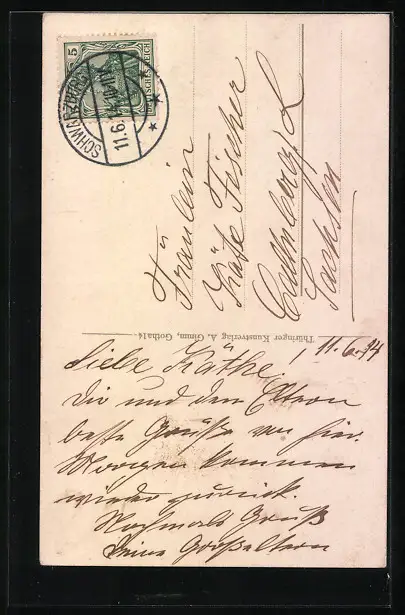 5
DEUTSCHES REICH
SCHWARZBURG
11.6.14
Fräulein
Käte Fischer
Sachsen
Thüringer Kunstverlag A. Gimm, Gotha14
11.6.14
Liebe Käthe.
Dir und den Eltern
beste Grüße von hier.
Morgen kommen
wieder zurück.
Nochmals Gruß
Deine Großeltern